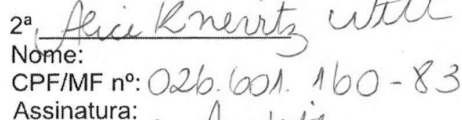 2ª Alice Knevitz Will
Nome:
CPF/MF nº: 026.601.160-83
Assinatura: